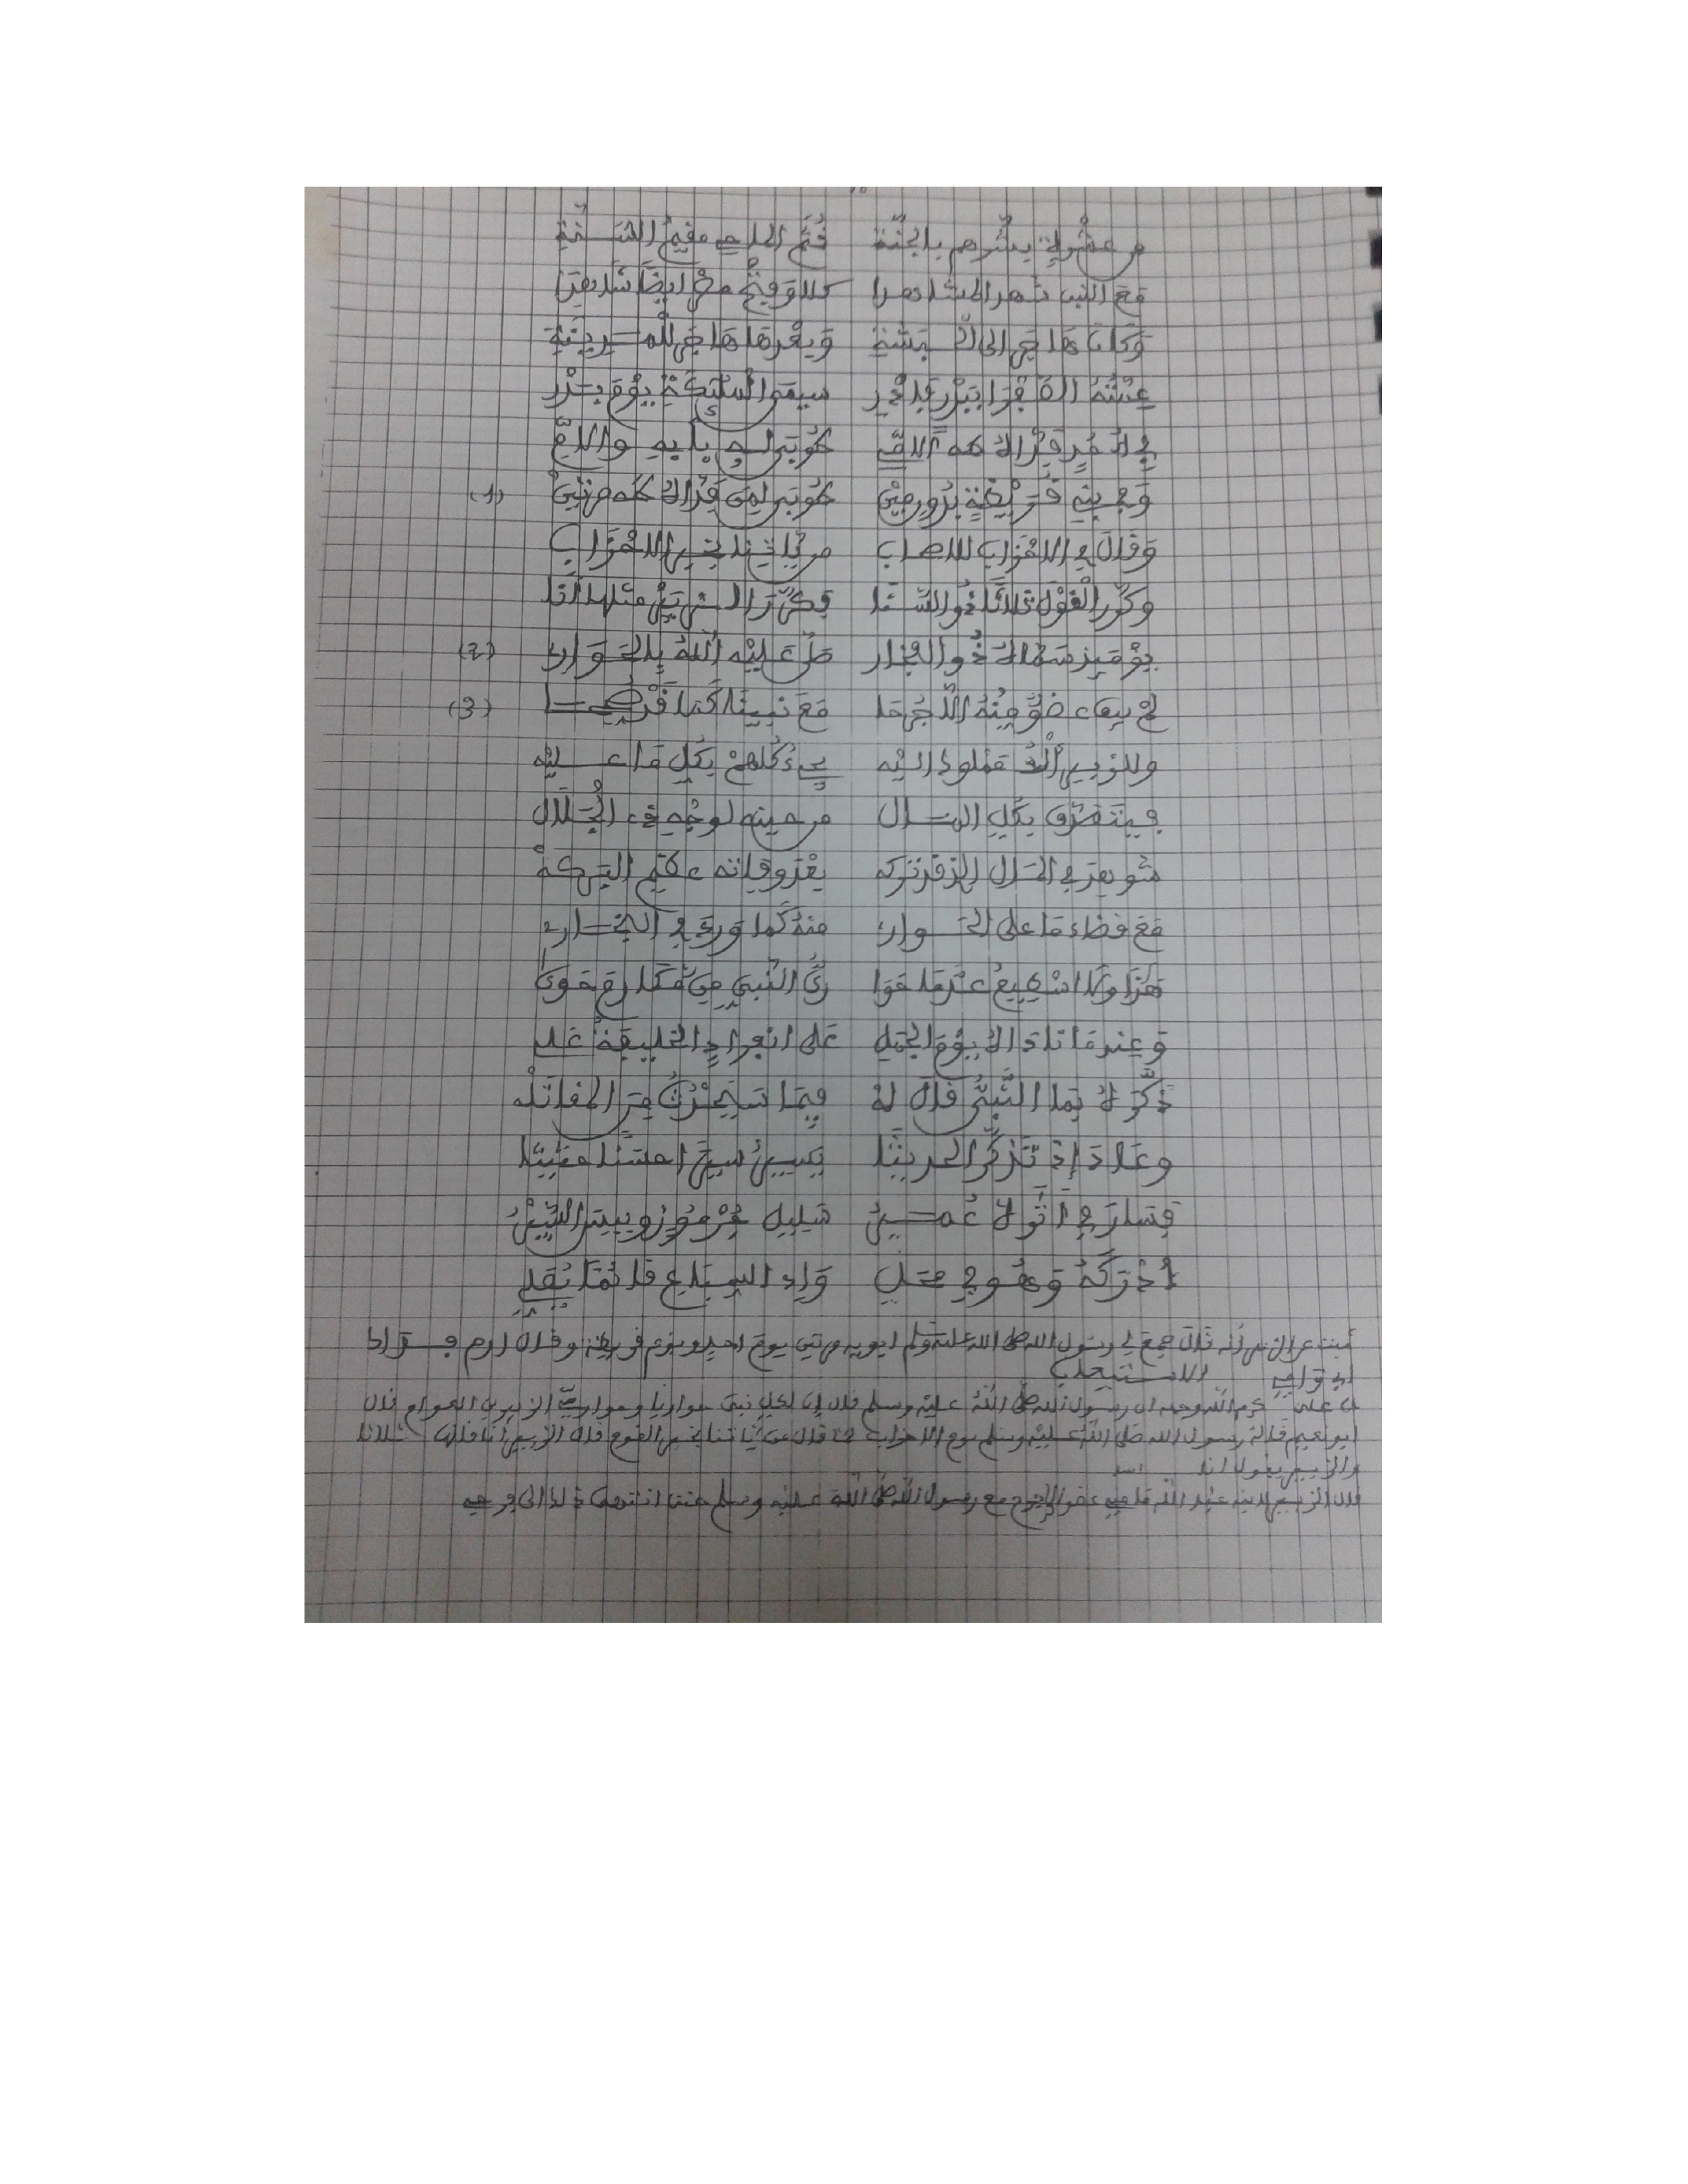 من عشرة يبشرهم بالجنة ثم الحاج مقيم السنة
مع النبي شهد المشاهدا كلا وفتح مصر أيضا شاهدا
وكان هاجر إلى الحبشة وبعدها هاجر للمدينة
عنه الفرا ببدر قد سيمة الملائكة بيوم بدر
في أحد فداك طه الأمي طوبى له بأبيه والأم
وفي بني قريظة بدون مين طوبى لمن فداه طه مرتين
وقال في الأحزاب للأصحاب من يأتينا بخبر الأحزاب
وكرر القول ثلاثا ذو السنا فكرر الزبير مثلها أنا
يومئذ سماه ذو الفخار صلى عليه الله بالحواري
لم يبق عضو منه إلا جرحا مع نبينا كما قد صرحا
وللزبير ألف مملوك إليه يؤدي كلهم بكل ما عليه
فيتصدق بكل المال من حينه لوجه ذي الجلال
شوهد في المال الذي قد تركه بعد وفاته عظيم البركة
مع قضاء ما على الحواري منه كما ورد في البخاري
هذا ولا أسطيع عد ما حوى رب النبي من مكارم حوى
وعندما ناداه يوم الجمل على انفراد الخليفة علي
ذكره بما النبي قال له فيما سيحدث من المقاتلة
وعاد إذ تذكر الحديثا يسير سيرا حسنا حثيثا
فسار في أثره عمير سليل جرموز وبيس السير
أدركه وهو في محل وادي السباع قائما يصلي
ثبت عن الزبير أنه قال جمع لي رسول الله صلى الله عليه وسلم أبويه مرتين يوم أحد ويوم قريظة وقال ارم فداك
أبي وأمي الاستيعاب
عن علي كرم الله وجهه أن رسول الله صلى الله عليه وسلم قال إن لكل نبي حواريا وحواري الزبير بن العوام قال
أبو نعيم قاله رسول الله صلى الله عليه وسلم يوم الأحزاب لما قال من يأتينا بخبر القوم قال الزبير أنا قالها ثلاثا
والزبير يقول أنا
قال الزبير لابنه عبد الله ما مني عضو إلا وجرح مع رسول الله صلى الله عليه وسلم حتى انتهى ذلك إلى فرجه